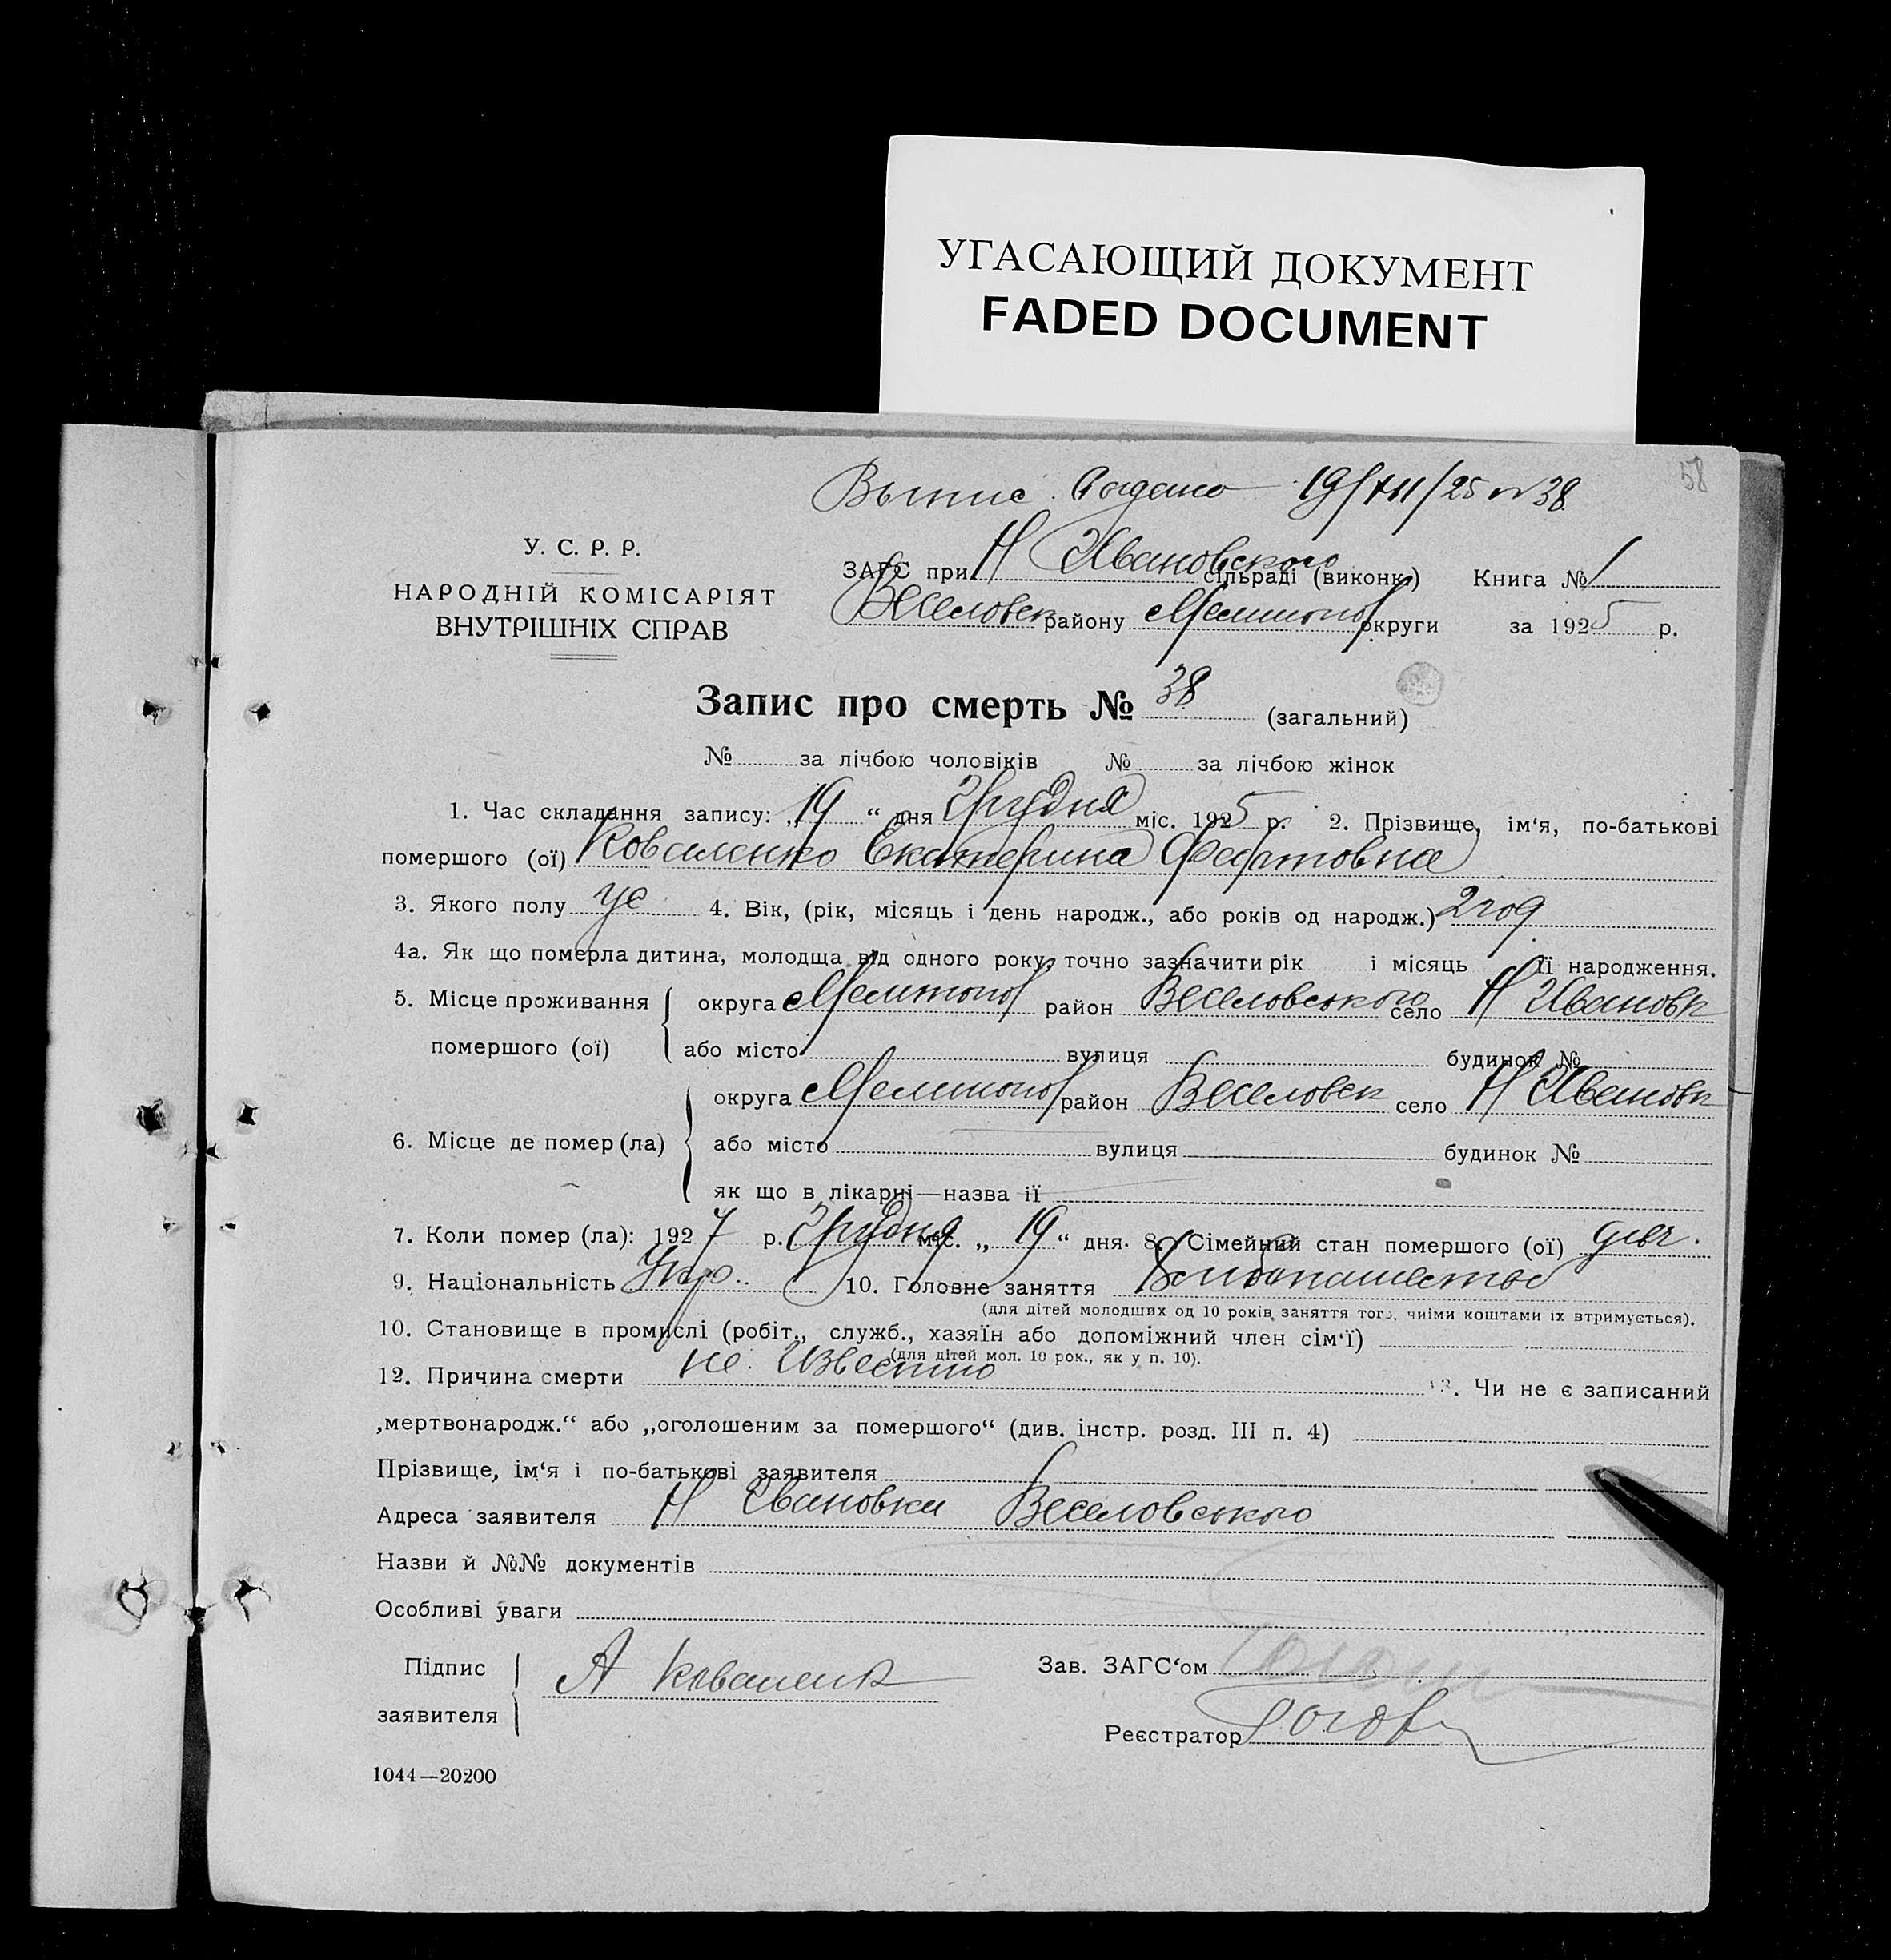 УГАСАЮЩИЙ ДОКУМЕНТ
FADED DOCUMENT
58
Выпис 19/XII/25 № 38
У. С. Р. Р.
НАРОДНІЙ КОМІСАРІЯТ
ВНУТРІШНІХ СПРАВ
ЗАГС при Н Ивановского сільраді (виконк.) Книга № 1
Веселовск району Мелитопол округи за 1925 р.
Запис про смерть № 38 (загальний)
№ за лічбою чоловіків № за лічбою жінок
1. Час складання запису: „19“ дня Грудня міс. 1925 р. 2. Прізвище, ім‘я, по-батькові
помершого (ої) Коваленко Екатерина
3. Якого полу 4. Вік, (рік, місяць і день народж., або років од народж.) 2 год
4а. Як що померла дитина, молодща від одного року, точно зазначити рік і місяць її народження.
5. Місце проживання округа Мелитопол район Веселовського село Н Ивановк
помершого (ої) або місто вулиця будинок №
округа Мелитопол район Веселовск село Н Ивановк
6. Місце де помер (ла) або місто вулиця будинок №
як що в лікарні—назва ії
7. Коли помер (ла): 1927 р. Грудня міс. „19“ дня. 8. Сімейний стан помершого (ої)
9. Національність Укр. 10. Головне заняття
(для дітей молодших од 10 років, заняття того, чиїми коштами їх втримується).
10. Становище в промислі (робіт., служб., хазяїн або допоміжний член сім‘ї)
(для дітей мол. 10 рок., як у п. 10).
12. Причина смерти не известно 13. Чи не є записаний
„мертвонародж.“ або „оголошеним за помершого“ (див. інстр. розд. III п. 4)
Прізвище, ім‘я і по-батькові заявителя
Адреса заявителя Н Ивановки Веселовського
Назви й №№ документів
Особливі уваги
Підпис
заявителя А Коваленк
Зав. ЗАГС‘ом
Реєстратор
1044—20200